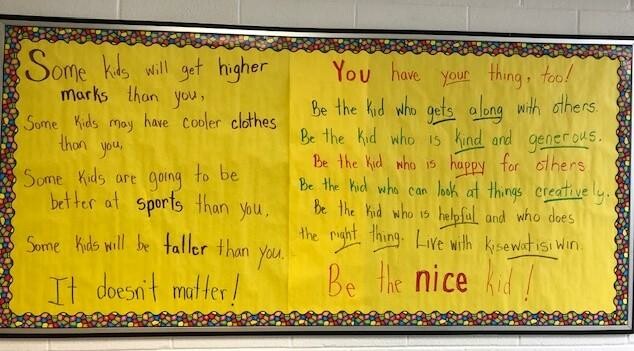 Some kids will get higher
marks than you,
Some kids may have cooler clothes
than you,
Some kids are going to be
better at sports than you,
Some kids will be taller than you.
It doesn't matter!
You have your thing, too!
Be the kid who gets along with others.
Be the kid who is kind and generous.
Be the kid who is happy for others
Be the kid who can look at things creatively.
Be the kid who is helpful and who does
the right thing. Live with kisewatisiwin.
Be the nice kid!